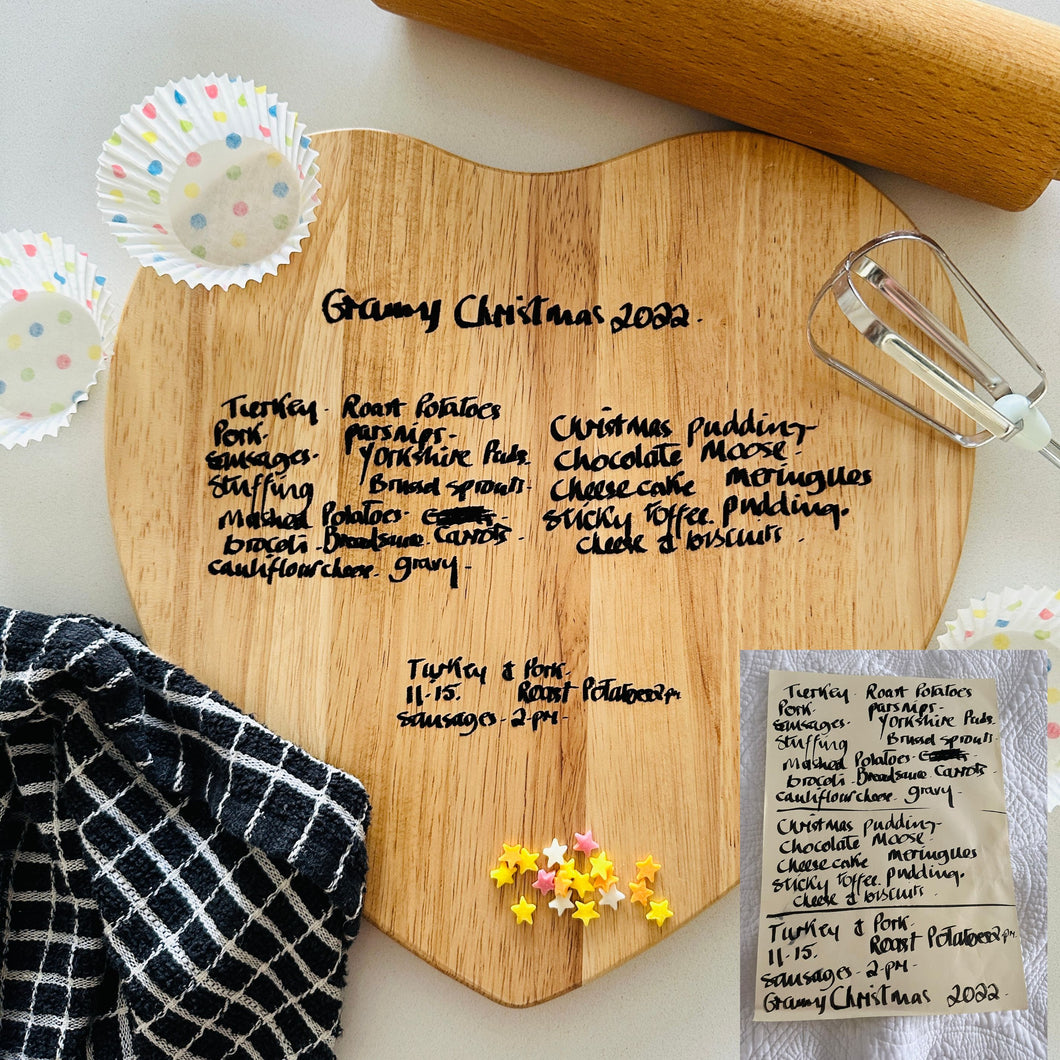 Gramy Christmas 2022.
Turkey. Roast Potatoes
Pork. parsnips.
Sausages. Yorkshire Puds.
Stuffing Brussel sprouts.
Mashed Potatoes.
brocoli. Breadsauce. Carrots.
cauliflour cheese. gravy.
Christmas pudding
Chocolate Moose.
Cheese cake meringues
sticky toffee. pudding.
Cheese & biscuits.
Turkey & Pork.
11-15. Roast Potatoes 2pm
Sausages - 2-PM.
Turkey. Roast Potatoes
Pork. parsnips.
Sausages. Yorkshire Puds.
Stuffing Brussel sprouts.
Mashed Potatoes.
brocoli. Breadsauce. Carrots.
cauliflour cheese. gravy.
Christmas pudding
Chocolate Moose.
Cheese cake meringues
sticky toffee. pudding.
Cheese & biscuits.
Turkey & Pork.
11-15. Roast Potatoes 2pm.
Sausages - 2-PM.
Gramy Christmas 2022.